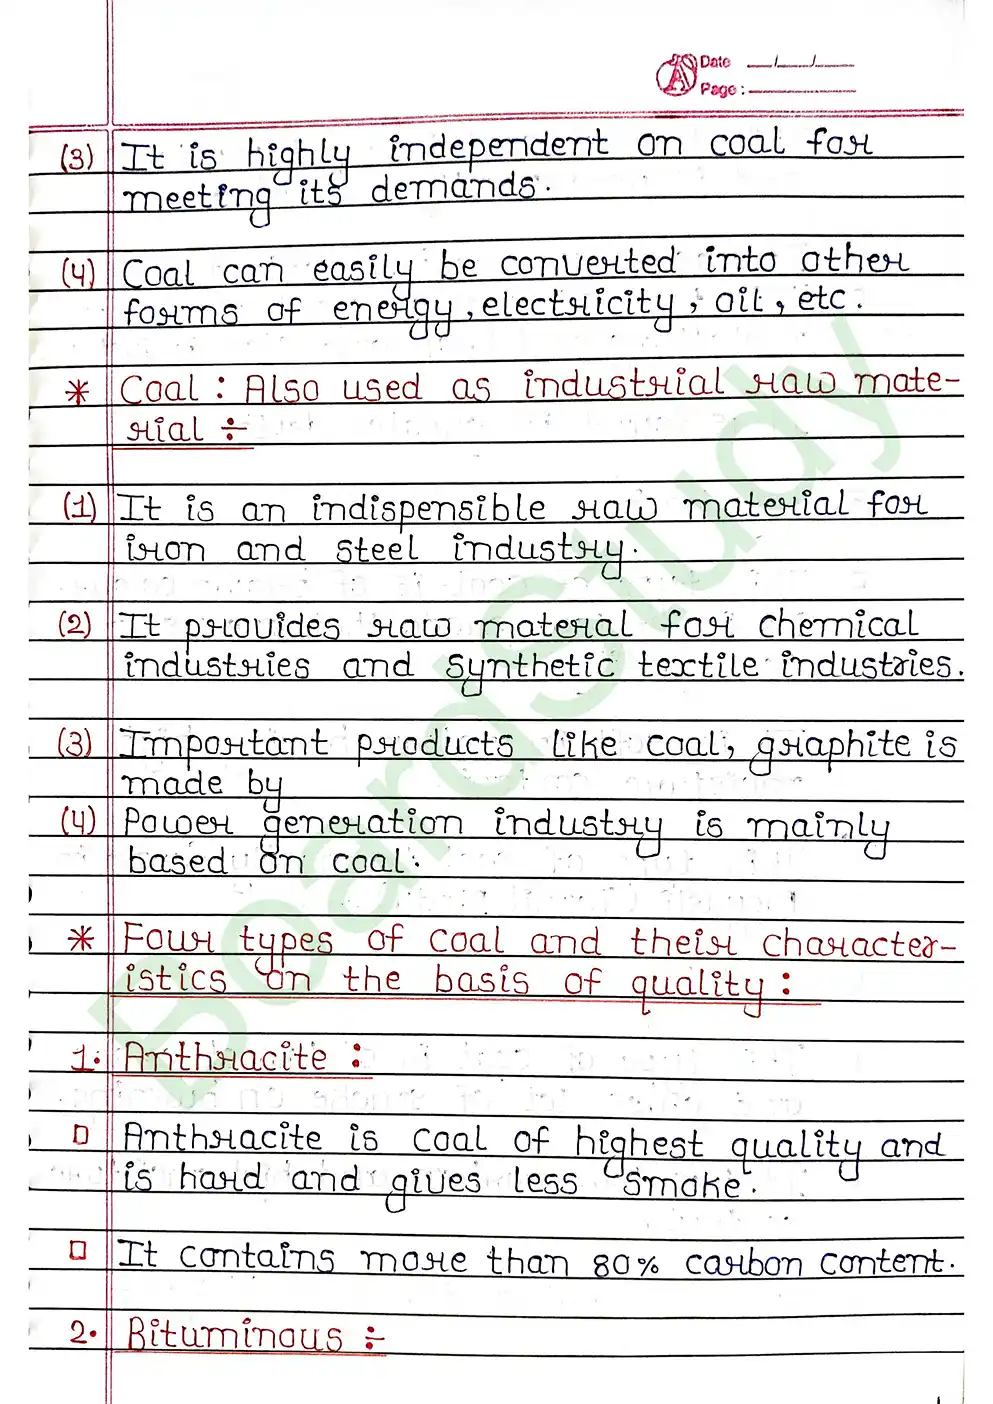 Date __/__/__
Page: ______
(3) It is highly independent on coal for
meeting its demands.
(4) Coal can easily be converted into other
forms of energy, electricity, oil, etc.
* Coal : Also used as industrial raw mate-
rial ÷
(1) It is an indispensible raw material for
iron and steel industry.
(2) It provides raw material for chemical
industries and synthetic textile industries.
(3) Important products like coal, graphite is
made by
(4) Power generation industry is mainly
based on coal.
* Four types of coal and their character-
istics on the basis of quality :
1. Anthracite :
□ Anthracite is coal of highest quality and
is hard and gives less smoke.
□ It contains more than 80% carbon content.
2. Bituminous ÷
BoardStudy